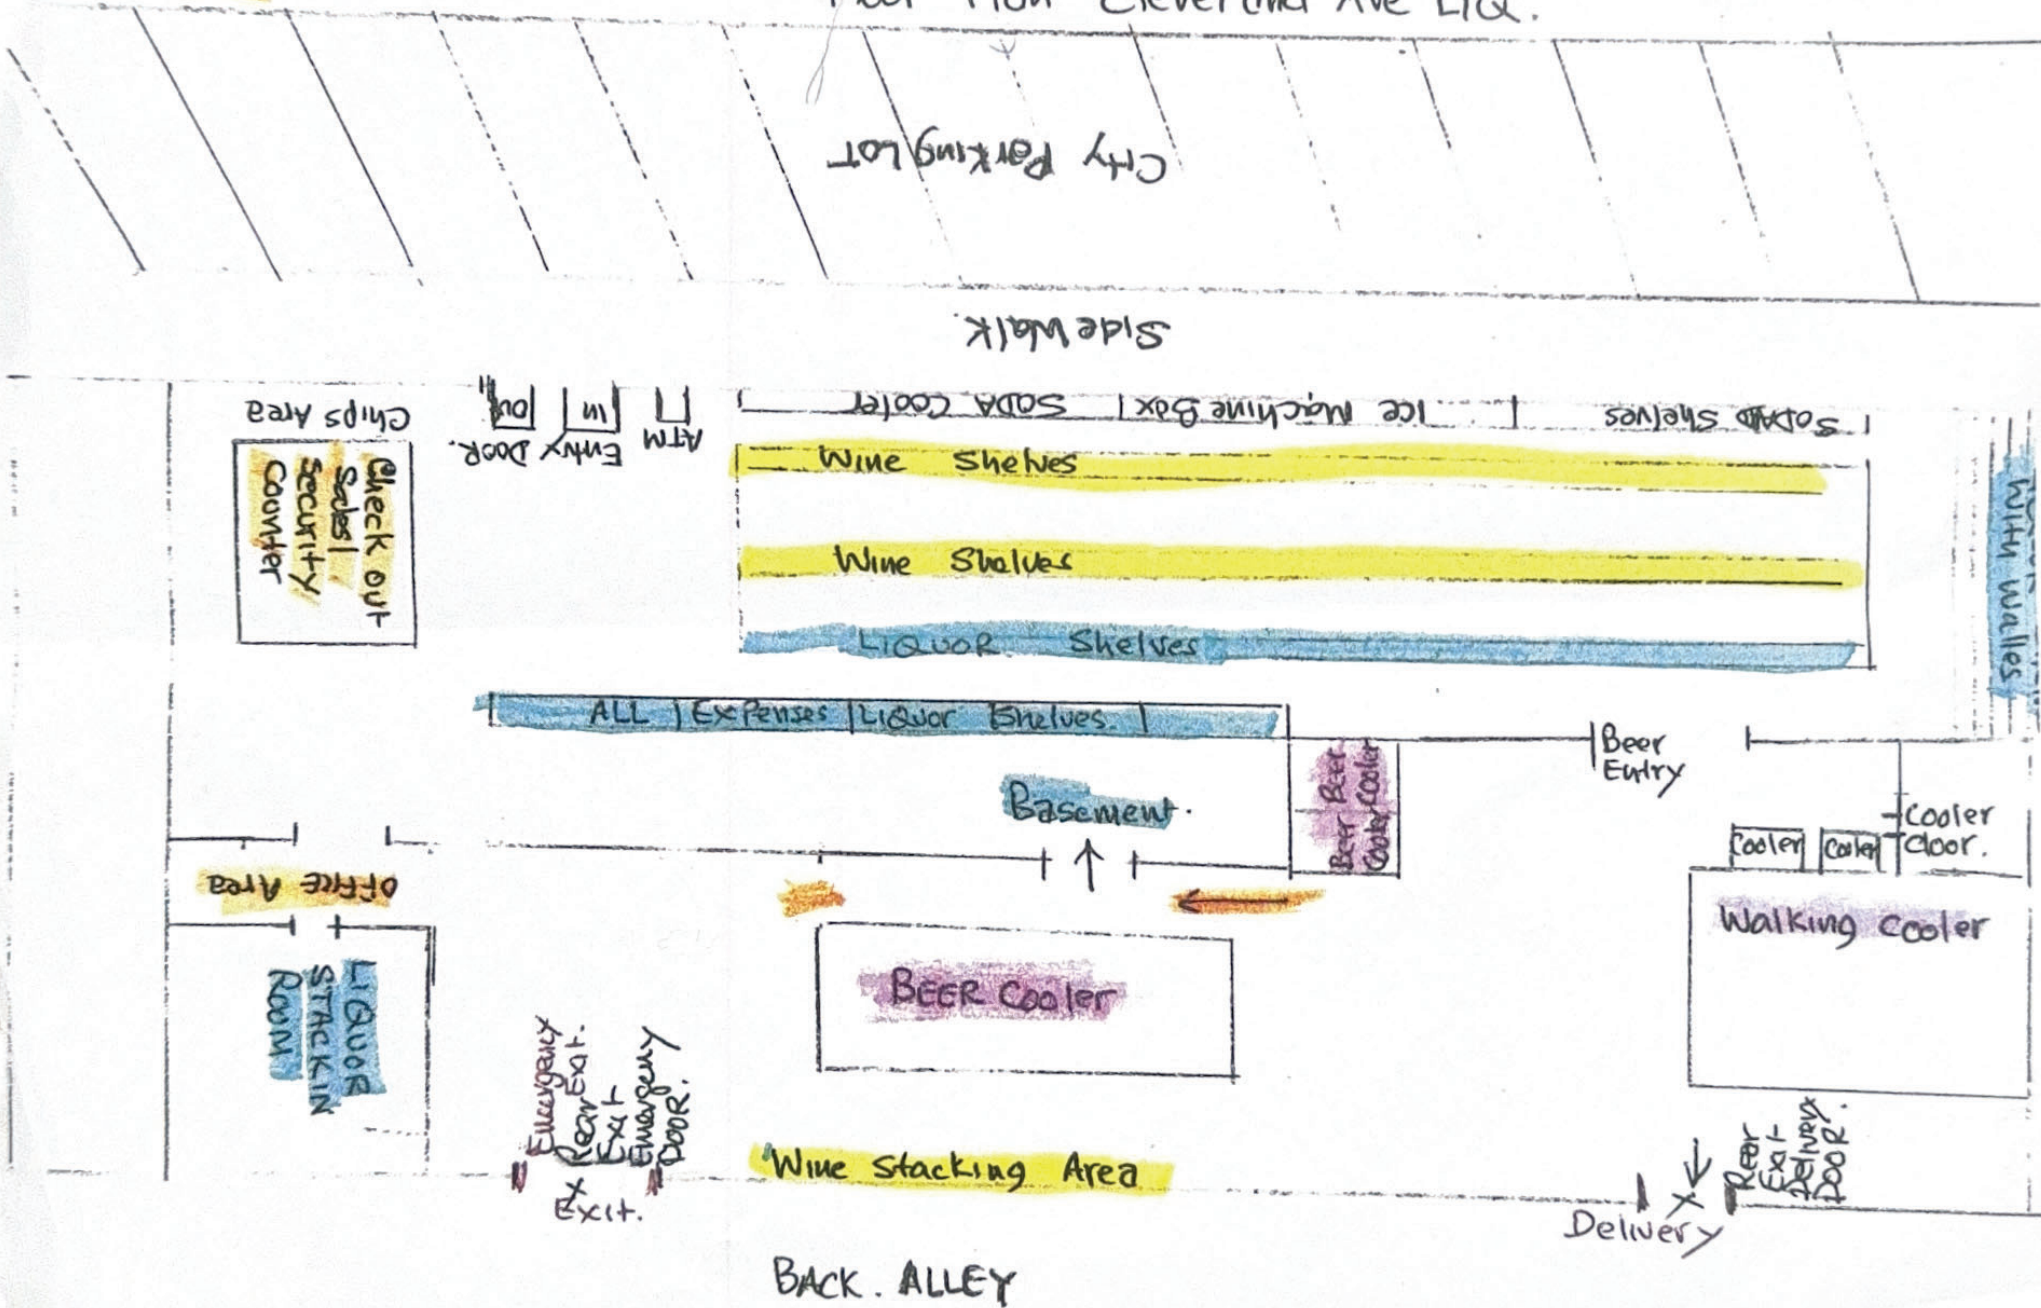 Cleveland Ave LIQ.
City Parking Lot
Side Walk
Chips Area
Out
In
Entry DOOR.
ATM
SODA Cooler
Ice Machine Box
Shelves
Check out
Sales
Security
Counter
Wine Shelves
Wine Shelves
LIQUOR Shelves
With Walles
ALL Expenses Liquor Shelves.
Beer
Entry
Beer Beer
Cooler Cooler
Basement.
Cooler
door.
Cooler
Cooler
OFFICE Area
Walking Cooler
LIQUOR
STACKIN
ROWN
BEER Cooler
Emergency
Rear Exit.
Exit
Emergency
DOOR.
X
Exit.
Wine Stacking Area
Rear
Exit
Delivery
DOOR.
X
Delivery
BACK. ALLEY